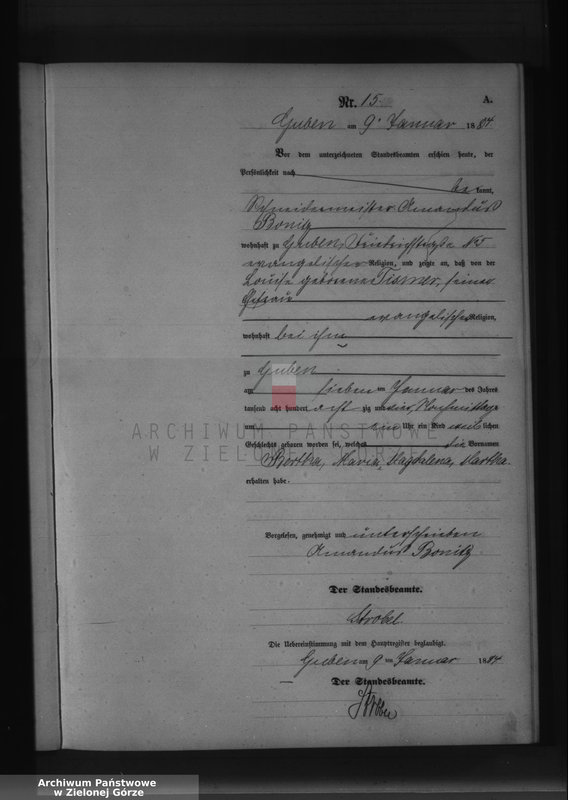 Nr. 15
A.
Guben am 9. Januar 1884.
Vor dem unterzeichneten Standesbeamten erschien heute, der
Persönlichkeit nach
be kannt,
Schneidermeister Amandus
Bonitz
wohnhaft zu Guben, Friedrichstraße
evangelischer Religion, und zeigte an, daß von der
Louise geborene Tismer, seiner
Ehefrau
evangelischer Religion,
wohnhaft bei ihm
zu Guben
am sieben ten Januar des Jahres
tausend acht hundert acht zig und vier, Nachmittags
um ein Uhr ein Kind weib lichen
Geschlechts geboren worden sei, welches die Vornamen
Bertha, Maria, Magdalena, Martha.
erhalten habe.
Vorgelesen, genehmigt und unterschrieben
Amandus Bonitz
Der Standesbeamte.
Strobel
Die Uebereinstimmung mit dem Hauptregister beglaubigt.
Guben am 9 ten Januar 1884
Der Standesbeamte.
Strobel
ARCHIWUM PAŃSTWOWE
W ZIELONEJ GÓRZE
Archiwum Państwowe
w Zielonej Górze